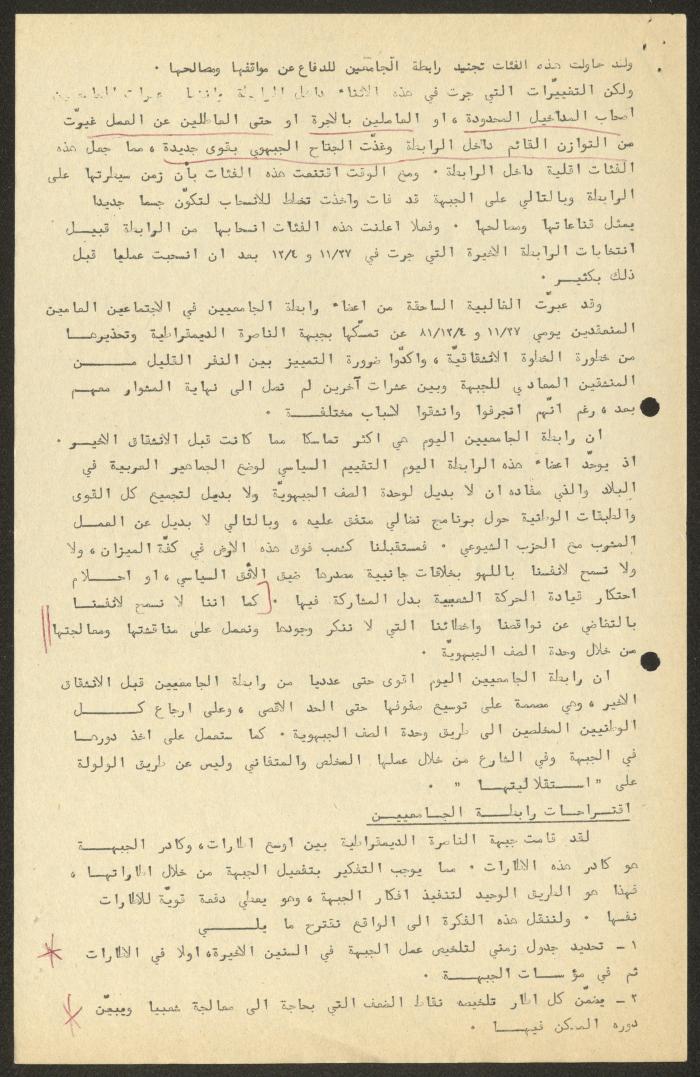 ولقد حاولت هذه الفئات تجنيد رابطة الجامعيين للدفاع عن مواقفها ومصالحها .
ولكن التغييرات التي جرت في هذه الاثناء داخل الرابطة
اصحاب المداخيل المحدودة ، او العاملين بالاجرة او حتى العاطلين عن العمل غيرّت
من التوازن القائم داخل الرابطة وغذّت الجناح الجبهوي بقوى جديدة ، مما جعل هذه
الفئات اقلية داخل الرابطة . ومع الوقت اقتنعت هذه الفئات بأن زمن سيطرتها على
الرابطة وبالتالي على الجبهة قد فات واخذت تخطط للانسحاب لتكوّن جسما جديدا
يمثل قناعاتها ومصالحها . وفعلا اعلنت هذه الفئات انسحابها من الرابطة قبيـل
انتخابات الرابطة الاخيرة التي جرت في ١١/٢٧ و ١٢/٤ بعد ان انسحبت عمليا قبل
ذلك بكثيـر .
وقد عبرّت الغالبية الساحقة من اعضاء رابطة الجامعيين في الاجتماعين العامين
المنعقدين يومي ١١/٢٧ و ٨١/١٢/٤ عن تمسّكها بجبهة الناصرة الديمقراطية وتحذيرهـا
من خطورة الخطوة الانشقاقيّة ، واكدّوا ضرورة التمييز بين النفر القليل مـــن
المنشقين المعادي للجبهة وبين عشرات آخرين لم تصل الى نهاية المشوار معهـم
بعد ، رغم انّهم انجرفوا وانشقوا لاسباب مختلفــة .
ان رابطة الجامعيين اليوم هي اكثر تماسكا مما كانت قبل الانشقاق الاخيـر .
اذ يوحدّ اعضاء هذه الرابطة اليوم التقييم السياسي لوضع الجماهير العربية في
البلاد والذي مفاده ان لا بديل لوحدة الصف الجبهويّة ولا بديل لتجميع كل القوى
والطبقات الوطنية حول برنامج نضالي متفق عليه ، وبالتالي لا بديل عن العمــل
المثوب مع الحزب الشيوعي . فمستقبلنا كشعب فوق هذه الارض في كفّة الميزان ، ولا
ولا نسمح لانفسنا باللهو بخلافات جانبية مصدرها ضيق الأفق السياسي ، او احــلام
احتكار قيادة الحركة الشعبية بدل المشاركة فيها . كما اننا لا نسمح لانفسنـا
بالتغاضي عن نواقصنا واخطائنا التي لا ننكر وجودها ونعمل على مناقشتها ومعالجتها
من خلال وحدة الصف الجبهويّة .
ان رابطة الجامعيين اليوم اقوى حتى عدديا من رابطة الجامعيين قبل الانشقاق
الاخير ، وهي مصممة على توسيع صفوفها حتى الحد الاقصى ، وعلى ارجاع كــــل
الوطنيين المخلصين الى طريق وحدة الصف الجبهوية . كما ستعمل على اخذ دورهـا
في الجبهة وفي الشارع من خلال عملها المخلص والمتفاني وليس عن طريق الولولة
على " استـقلاليتهـا " .
اقتـراحات رابطــة الجــامعييـن
لقد قامت جبهة الناصرة الديمقراطية بين اوسع اطارات ، وكادر الجبهــة
هو كادر هذه الاطارات . مما يوجب التفكير بتفعيل الجبهة من خلال اطاراتهـا ،
فهذا هو الطريق الوحيد لتنفيذ افكار الجبهة ، وهو يعطي دفعة قويّة للاطارات
نفسها . ولننقل هذه الفكرة الى الواقع نقترح ما يلـــي
١ ـ تحديد جدول زمني لتلخيص عمل الجبهة في السنين الاخيرة ، اولا في الاطارات
ثم في مؤسسات الجبهــة .
٢ ـ يضمّن كل اطار تلخيصه نقاط الضعف التي بحاجة الى معالجة شعبيا ويبيّن
دوره الممكن فيهــا .